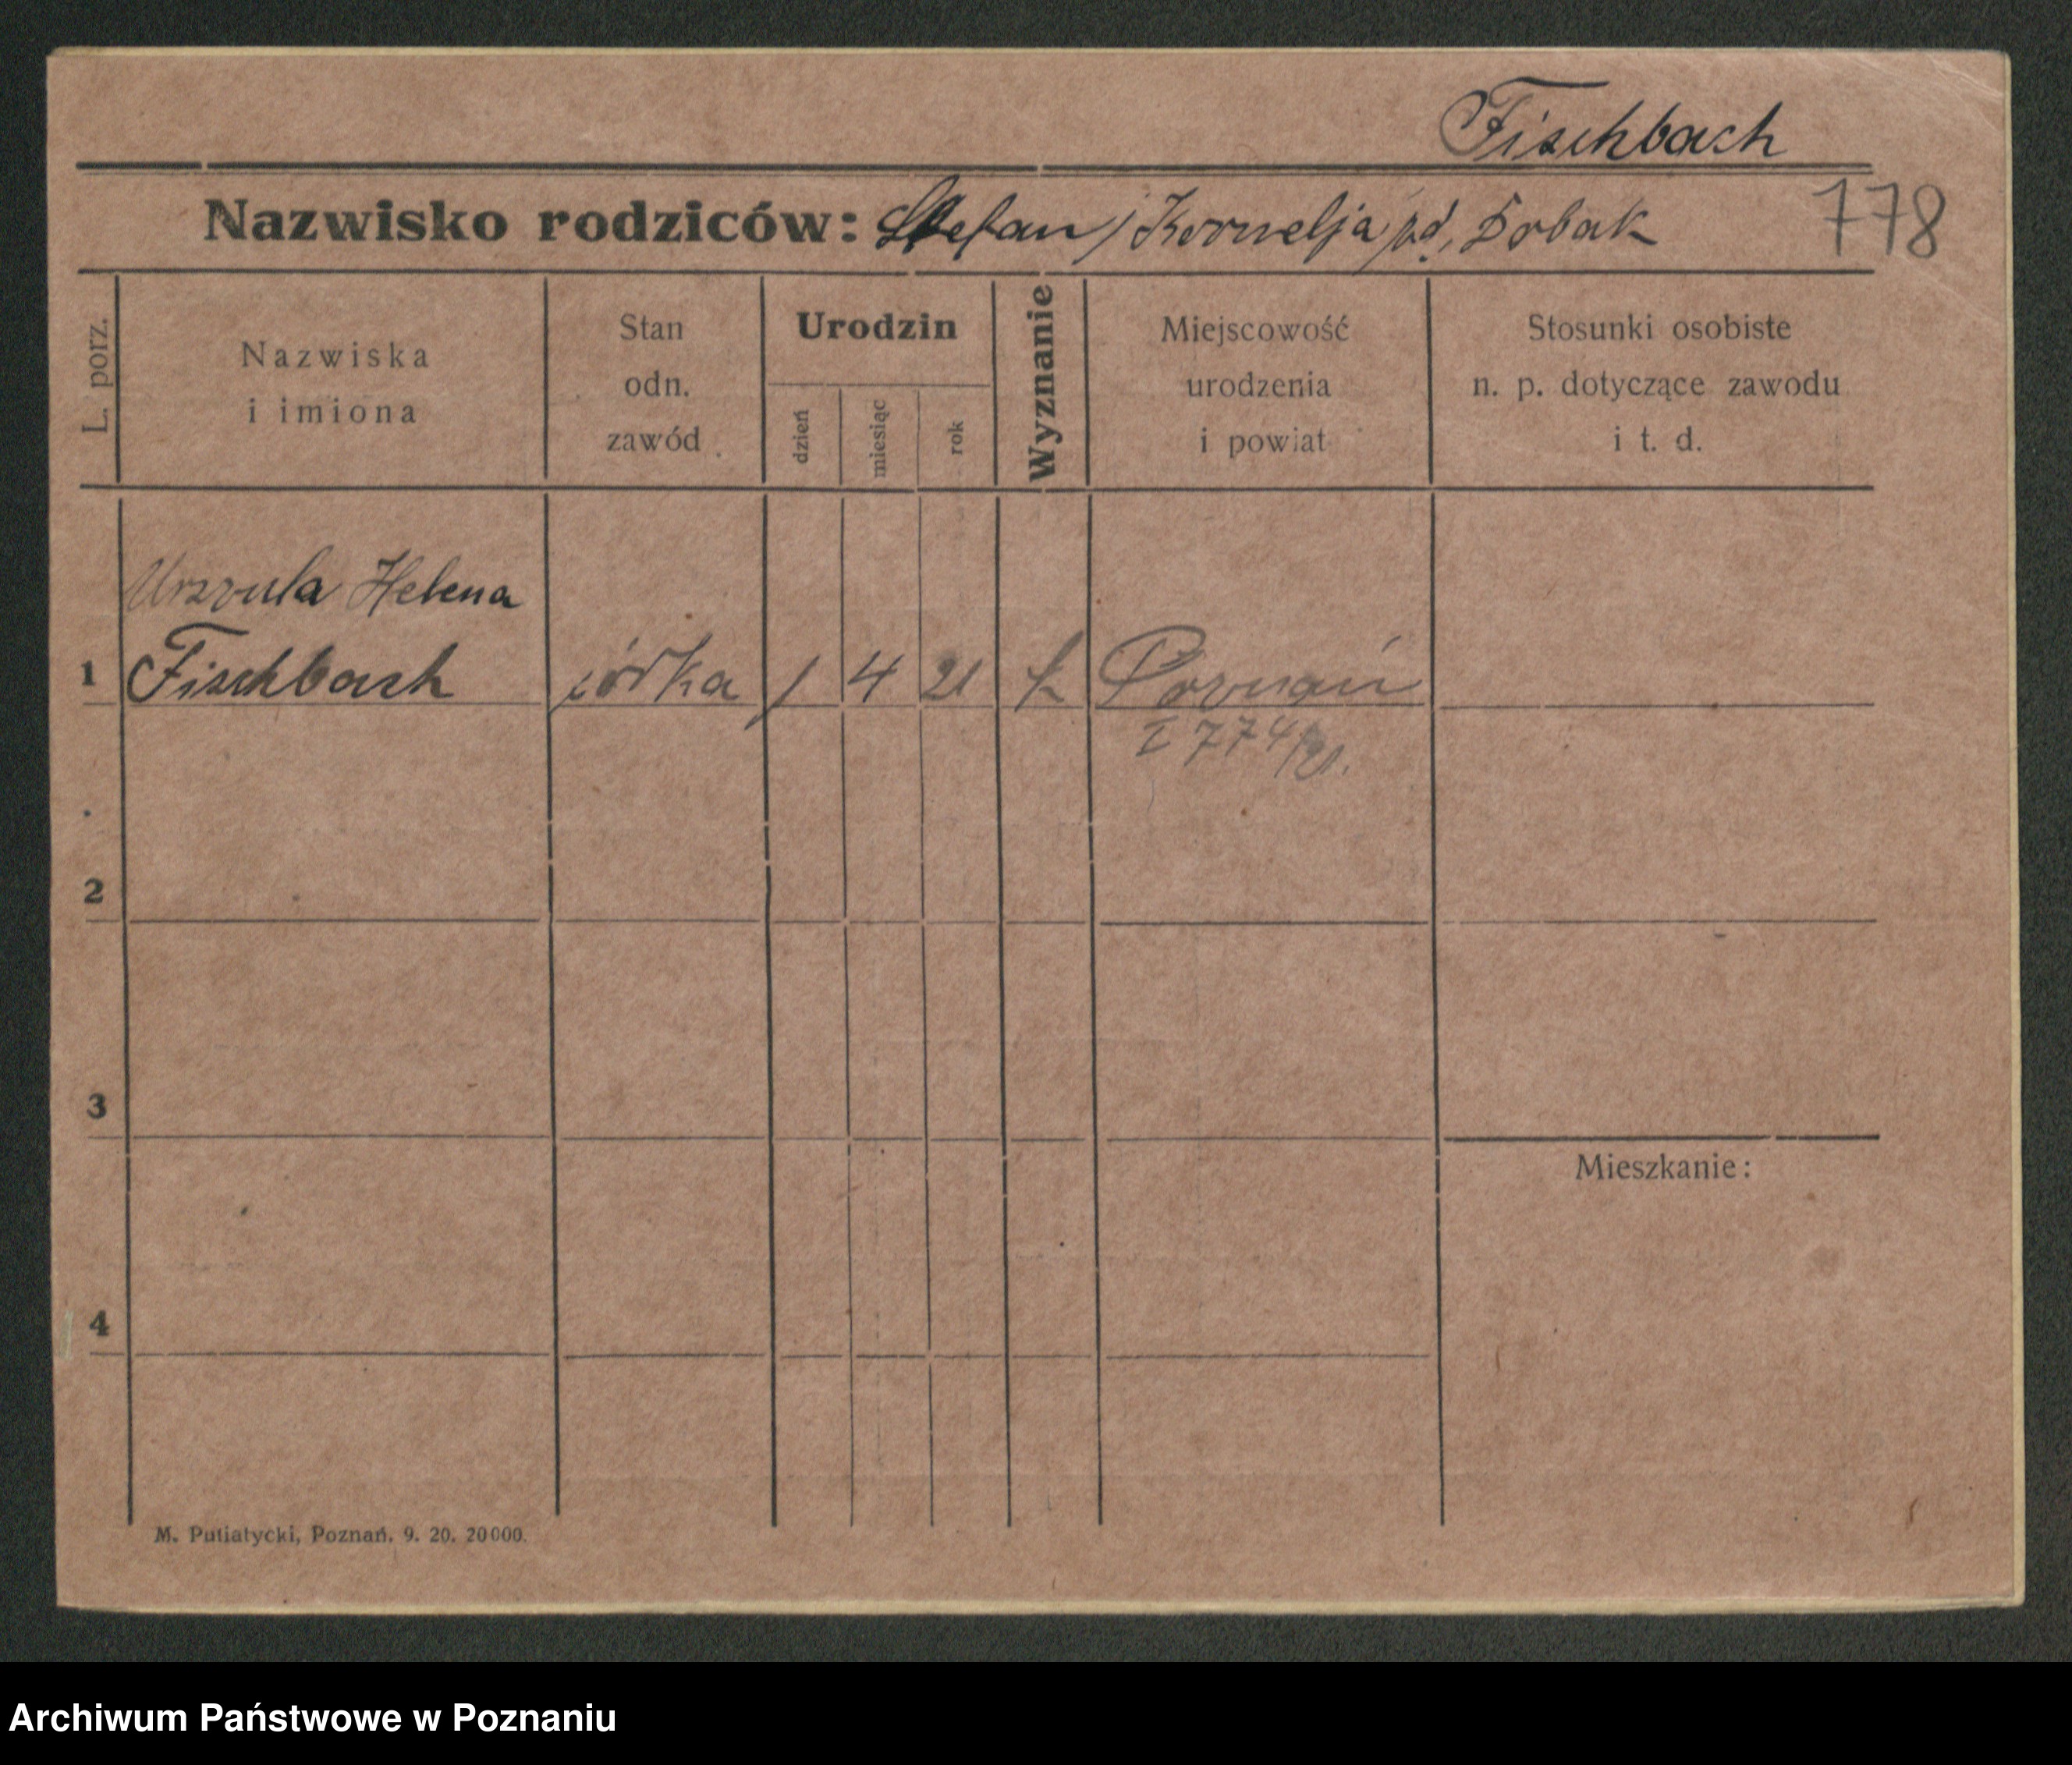 Fischbach
Nazwisko rodziców: Stefan / Kornelja / zd. Dobak
778
L. porz.
Nazwiska
i imiona
Stan
odn.
zawód
Urodzin
dzień
miesiąc
rok
Wyznanie
Miejscowość
urodzenia
i powiat
Stosunki osobiste
n. p. dotyczące zawodu
i t. d.
Urszula Helena
1 Fischbach córka 1 4 21 k Poznań
I 774/21.
2
3
Mieszkanie:
4
M. Putiatycki, Poznań. 9. 20. 20000.
Archiwum Państwowe w Poznaniu